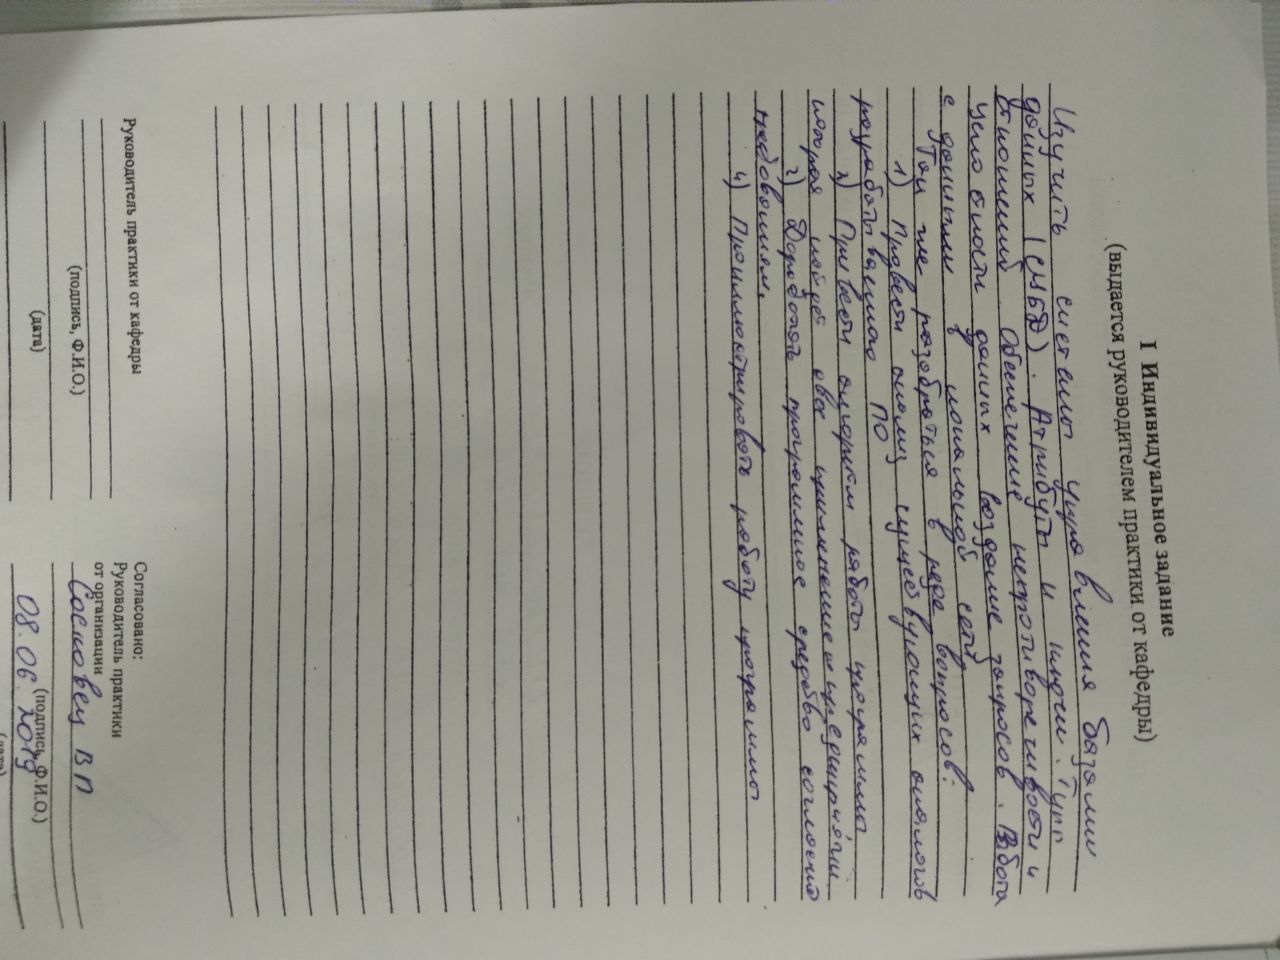 I Индивидуальное задание
(выдается руководителем практики от кафедры)
Изучить системы управления базами
данных (СУБД). Атрибуты и ключи. Типы
отношений. Обеспечение непротиворечивости и
целостности данных. Создание запросов. Работа
с данными в локальной сети
Так же разобраться в ряде вопросов:
1) Провести анализ существующих аналогов
разрабатываемого ПО
2) Привести алгоритм работы программы
которая найдет свое применение
3) Доработать программное средство согласно
требованиям.
4) Проиллюстрировать работу программы
Руководитель практики от кафедры
(подпись, Ф.И.О.)
(дата)
Согласовано:
Руководитель практики
от организации
ВП
(подпись, Ф.И.О.)
08.06.2019
(дата)